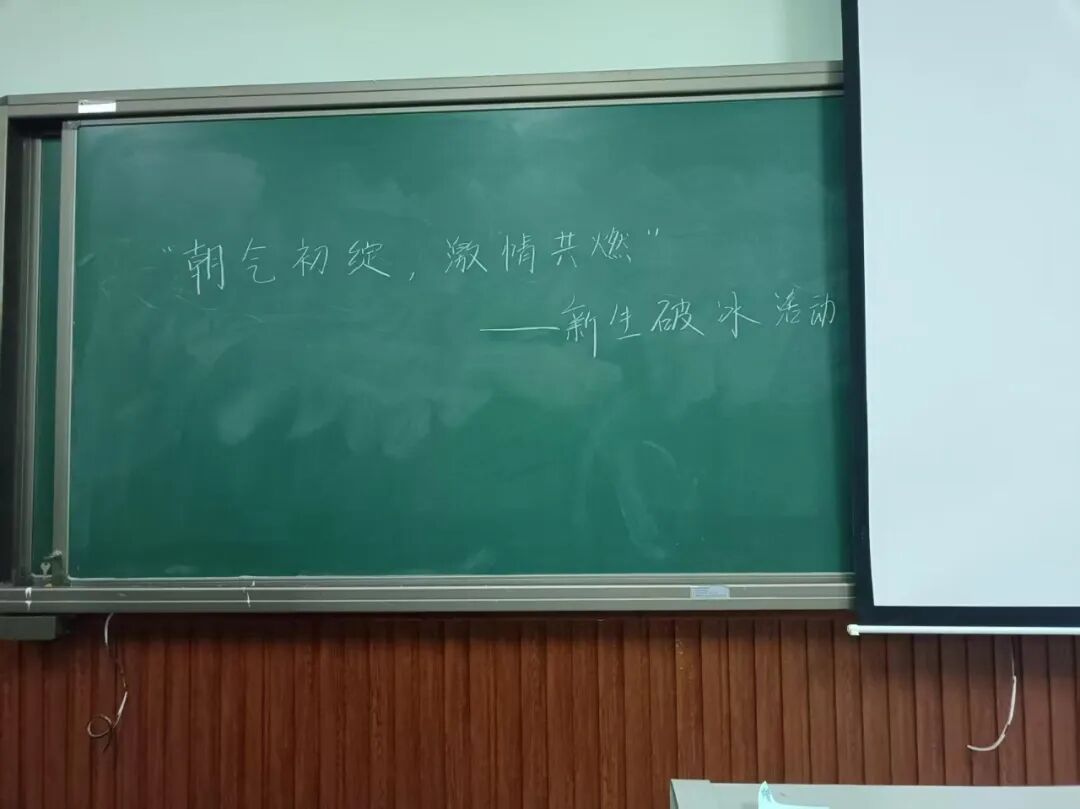 “朝气初绽，激情共燃”
——新生破冰活动